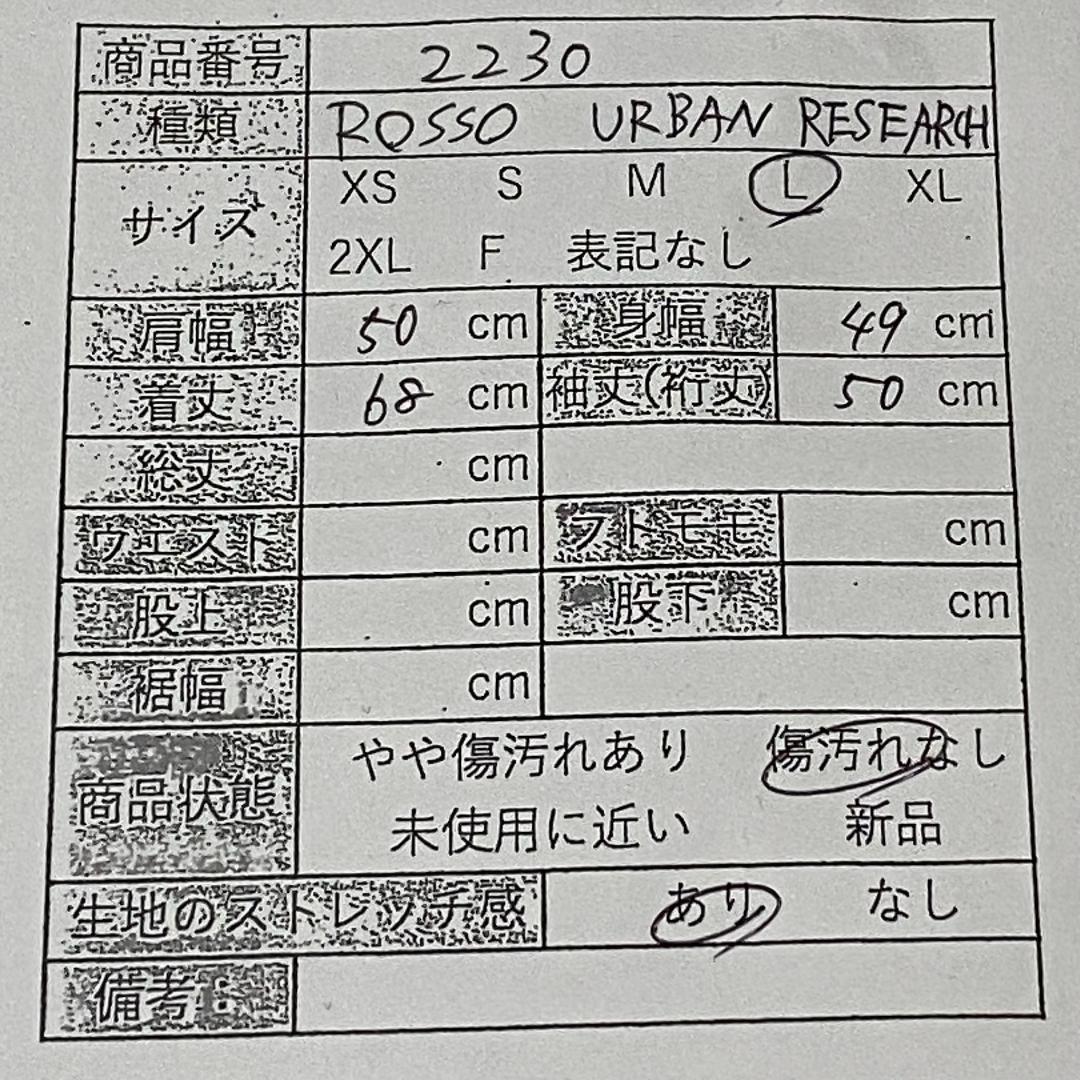 商品番号 2230
種類 ROSSO URBAN RESEARCH
サイズ XS S M L XL
2XL F 表記なし
肩幅 50 cm 身幅 49 cm
着丈 68 cm 袖丈(裄丈) 50 cm
総丈 cm
ウエスト cm フトモモ cm
股上 cm 股下 cm
裾幅 cm
商品状態 やや傷汚れあり 傷汚れなし
未使用に近い 新品
生地のストレッチ感 あり なし
備考: